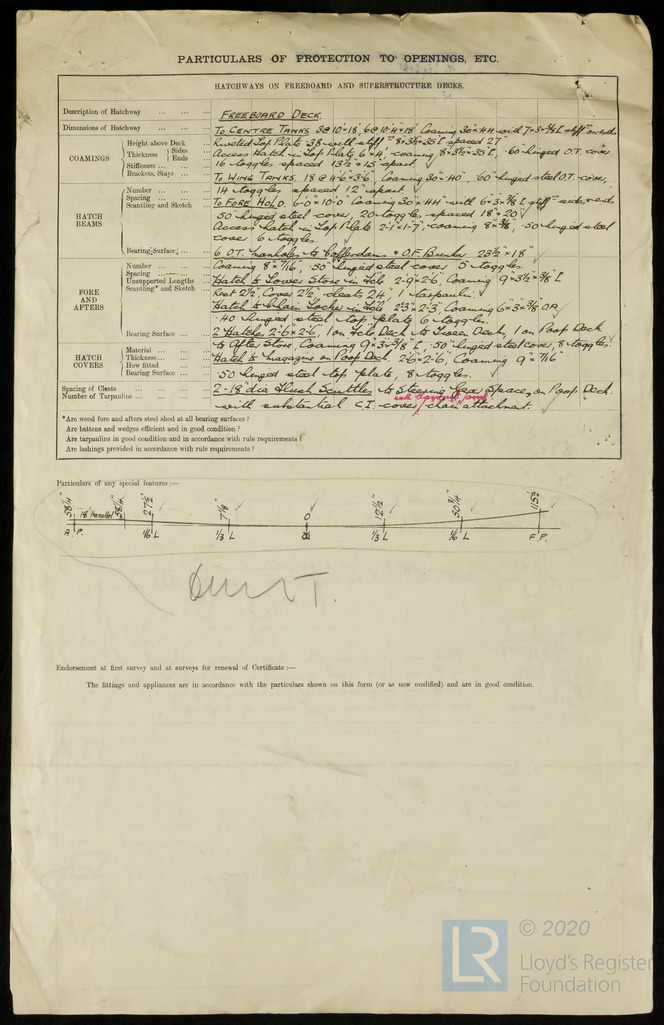 PARTICULARS OF PROTECTION TO OPENINGS, ETC.
HATCHWAYS ON FREEBOARD AND SUPERSTRUCTURE DECKS.
Description of Hatchway ... ... ... FREEBOARD DECK.
Dimensions of Hatchway ... ... ... To CENTRE TANKS 3@10×18, 6@10·4×18 Coaming 30"×44 with 7×3×
COAMINGS
Height above Deck ... Riveted Top Plate 38 with stiff 8×3½×35 [ spaced 27"
Thickness { Sides ... Access Hatch in Top Plate 6×4, coaming 8×3½×35 [, ·60 hinged O.T. cover
Ends ...
Stiffeners ... ... 16 toggles spaced 13½ × 15 apart.
Brackets, Stays ... ... To WING TANKS. 18@4·6×3·6, Coaming 30"×40", ·60 hinged steel O.T. cover,
HATCH BEAMS
Number ... ... ... 14 toggles spaced 12" apart. ✓
Spacing ... ... ...
Scantling and Sketch ... To FORE HOLD. 6-0"×10·0" Coaming 30"×44 with 6×3×⅜ [ stiff
·50 hinged steel cover, 20 toggles spaced 18"×20 ✓
Access hatch in Top Plate 2-1"×1-7", coaming 8"×⅜, ·50 hinged steel
cover 6 toggles.
Bearing Surface ... 6 O.T. manholes to Cofferdams & O.F. Bunker 23½"×18" ✓
FORE AND AFTERS
Number ... ... ... Coaming 8"×7/16, ·50 hinged steel cover 5 toggles.
Spacing ... ... ...
Unsupported Lengths ... Hatch to Lower Store in Fcle 2-9×2·6, Coaming 9"×3½×⅜ [
Scantling* and Sketch ... Rest 2½", Cover 2½", cleats 24", 1 tarpaulin.
Hatch to Chain Locker in Fcle 2'3×2'3, Coaming 6"×3×⅜ OA
·40 hinged steel top plate 6 toggles.
Bearing Surface ... 2 Hatches 2'·6"×2·6", 1 on Fcle Deck to Tween Deck, 1 on Poop Deck
HATCH COVERS
Material ... ... ... to After Store, Coaming 9×3×⅜ [, ·50 hinged steel cover, 8 toggles.
Thickness ... ... ... Hatch to magazine on Poop Deck. 2'6"×2'6", Coaming 9"×7/16"
How fitted ... ...
Bearing Surface ... ·50 hinged steel top plate, 8 toggles.
Spacing of Cleats ... ... 2 - 18" dia Flush Scuttles to Steering Gear Space, on Poop Deck
Number of Tarpaulins ... ... with substantial C.I. cover, chain attachment.
*Are wood fore and afters steel shod at all bearing surfaces?
Are battens and wedges efficient and in good condition?
Are tarpaulins in good condition and in accordance with rule requirements?
Are lashings provided in accordance with rule requirements?
Particulars of any special features:—
58¼" 18' Parallel 58¼" 27½" 7⅛" 0 12½" 50¾" 115½
A.P. ⅙ L ⅓ L ⅓ L ⅙ L F.P.
Endorsement at first survey and at surveys for renewal of Certificate:—
The fittings and appliances are in accordance with the particulars shown on this form (or as now modified) and are in good condition.
LR
© 2020
Lloyd's Register
Foundation